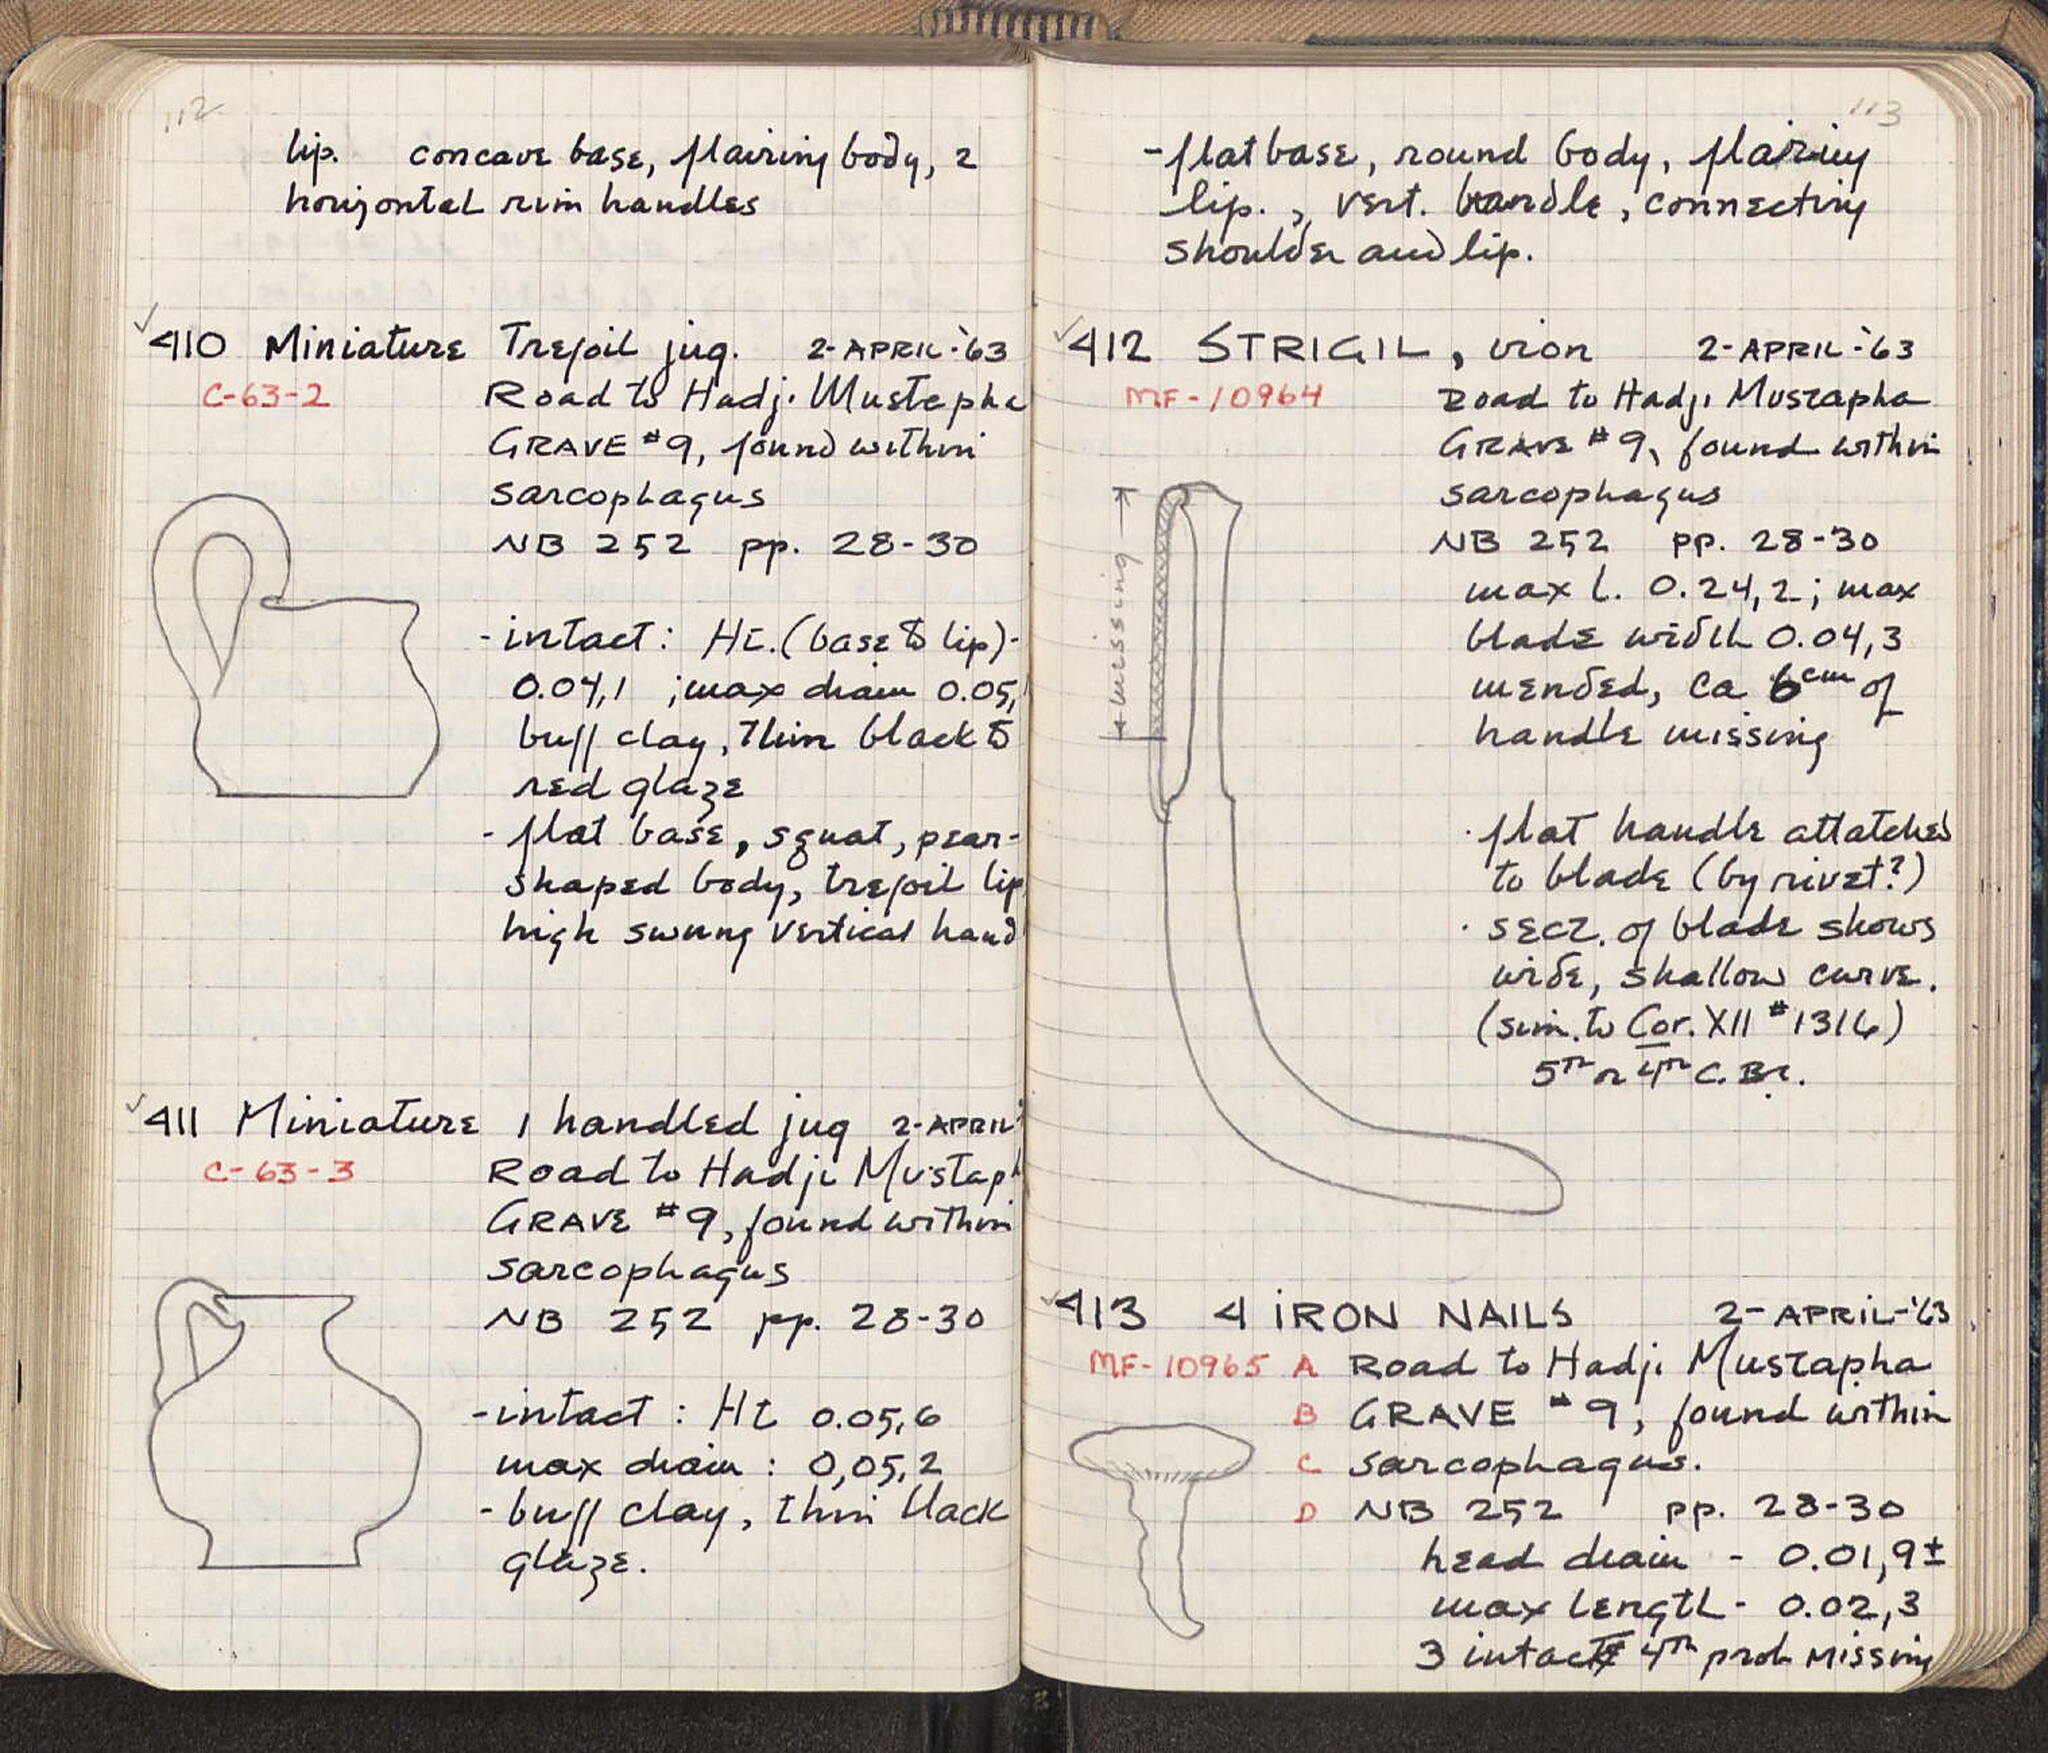 112
lip. concave base, flairing body, 2
horizontal rim handles
410 Miniature Trefoil jug. 2-APRIL-'63
C-63-2 Road to Hadji Mustapha
GRAVE #9, found within
sarcophagus
NB 252 pp. 28-30
- intact: Ht. (base to lip)-
0.04,1 ; max diam 0.05,
buff clay, thin black to
red glaze
- flat base, squat, pear-
shaped body, trefoil lip
high swung vertical hand
411 Miniature 1 handled jug 2-APRIL
C-63-3 Road to Hadji Mustaph
GRAVE #9, found within
sarcophagus
NB 252 pp. 28-30
- intact: Ht 0.05,6
max diam: 0,05,2
- buff clay, thin black
glaze.
113
- flat base, round body, flairing
lip., vert. handle, connecting
shoulder and lip.
412 STRIGIL, iron 2-APRIL-'63
MF-10964 Road to Hadji Mustapha
GRAVE #9, found within
sarcophagus
NB 252 pp. 28-30
missing
max l. 0.24,2; max
blade width 0.04,3
mended, ca 6cm of
handle missing
· flat handle attatched
to blade (by rivet?)
· sect. of blade shows
wide, shallow curve.
(sim. to Cor. XII #1316)
5th or 4th C. BC.
413 4 IRON NAILS 2-APRIL-'63
MF-10965 A Road to Hadji Mustapha
B GRAVE #9, found within
C sarcophagus.
D NB 252 pp. 28-30
head diam - 0.01,9±
max length - 0.02,3
3 intact 4th prob missing